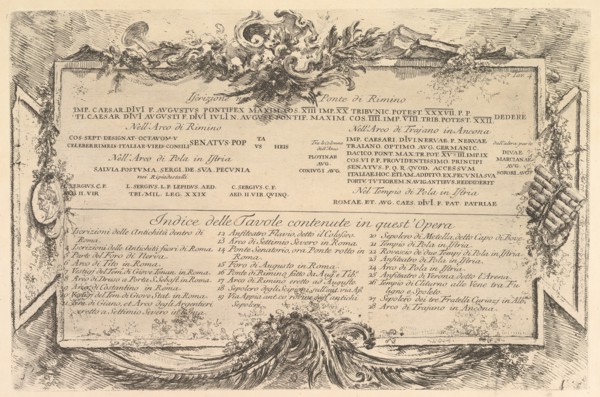 Iscrizione Ponte di Rimino
IMP. CAESAR. DIVI F. AVGVSTVS PONTIFEX MAXIM. COS. XIII IMP. XX TRIBVNIC. POTEST. XXXVII. P. P.
TI. CAESAR DIVI AVGVSTI F. DIVI IVLI N. AVGVST. PONTIF. MAXIM. COS. IIII. IMP. VIII TRIB. POTEST. XXII. DEDERE
Nell'Arco di Rimino
COS. SEPT. DESIGNAT. OCTAVOM V
CELEBERRIMEIS ITALIAE VIEIS CONSILI SENATVS POP
Nell'Arco di Pola in Istria
SALVIA. POSTVMA. SERGI. DE. SVA. PECVNIA
nei Piedistalli
L. SERGIVS. C. F. L. SERGIVS. L. F. LEPIDVS. AED. C. SERGIVS C. F.
AED. II. VIR TR. MIL. LEG. XXIX AED. II. VIR QVINQ.
Nell'Arco di Trajano in Ancona
PLOTINAE
AVG.
CONIVGI AVG.
IMP. CAESARI. DIVI. NERVAE. F. NERVAE
TRAIANO. OPTIMO. AVG. GERMANIC.
DACICO. PONT. MAX. TR. POT. XVIIII IMP. IX
COS. VI. P. P. PROVIDENTISSIMO. PRINCIPI
SENATVS. P. Q. R. QVOD. ACCESSVM
ITALIAE. HOC. ETIAM. ADDITO. EX. PECVNIA. SVA
PORTV. TVTIOREM. NAVIGANTIBVS. REDDIDERIT
DIVAE
MARCIANAE
AVG.
SORORI. AVG
Nel Tempio di Pola in Istria
ROMAE. ET. AVG. CAES. DIVI. F. PAT. PATRIAE
Indice delle Tavole contenute in quest'Opera
1 Iscrizioni delle Antichità dentro di
Roma.
Iscrizioni delle Antichità fuori di Roma
Parte del Foro di Nerva.
Arco di Tito in Roma.
Vestigj del Tem. di Giove Tonan. in Roma.
Arco di Druso a Porta S. Sebast. in Roma
9 Arco di Costantino in Roma.
10 Vestigj del Tem. di Giove Stat. in Roma.
Tem. di Giano, et Arco degli Argentieri
eretto a Settimio Severo in Roma
12 Anfiteatro Flavio, detto il Colosseo.
13 Arco di Settimio Severo in Roma.
14 Ponte Senatorio, ora Ponte rotto in
Roma.
15 Foro di Augusto in Roma.
16 Ponte di Rimino, fatto da Aug. e Tib.
17 Arco di Rimino eretto ad Augusto
18 Sepolcro degli Scipioni sull'ant. via Ap.
19 Via Appia ant. co' rovinosi antichi
Sepolcri
20 Sepolcro di Metella, detto Capo di Bove
21 Tempio di Pola in Istria.
22 Rovescio de' due Tempj di Pola in Istria.
23 Anfiteatro di Pola in Istria.
24 Arco di Pola in Istria.
25 Anfiteatro di Verona, detto l'Arena.
26 Tempio di Clitunno alle Vene tra Fu
ligno e Spoleto.
27 Sepolcro dei tre Fratelli Curiazj in Alb.
28 Arco di Trajano in Ancona.